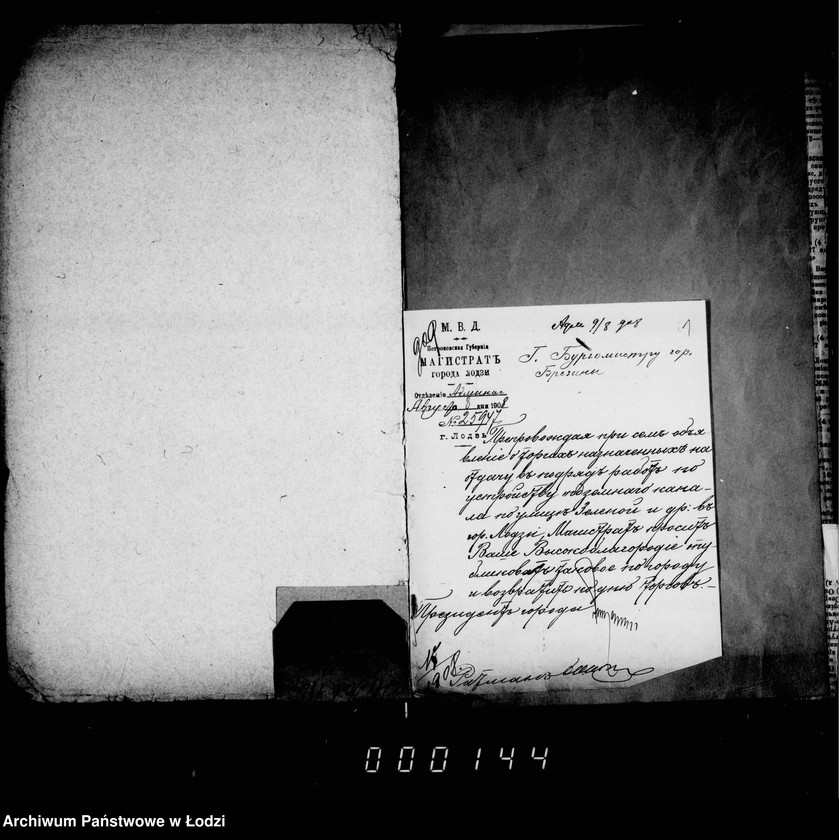 М. В. Д.
Петроковская Губернія
МАГИСТРАТЪ
ГОРОДА ЛОДЗИ
Отдѣленіе Админис.
Августа 8 дня 1908
№ 25977
г. Лодзь
9/8 908
1
Г. Бургомистру гор.
Брезины
Препровождая при семъ объя
вленіе о торгахъ назначенныхъ на
отдачу въ подрядъ работъ по
устройству подземнаго кана-
ла по улицѣ Зеленой и др: въ
гор. Лодзи, Магистратъ проситъ
Ваше Высокоблагородіе опу-
бликовать таковое по городу
и возвратить по дню торговъ.-
Президентъ города
Ратманъ
000144
Archiwum Państwowe w Łodzi